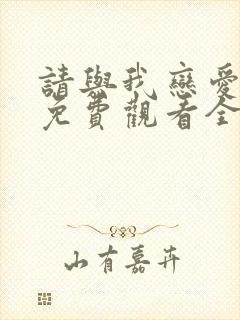 請與我戀愛
免費觀看全
山有嘉卉